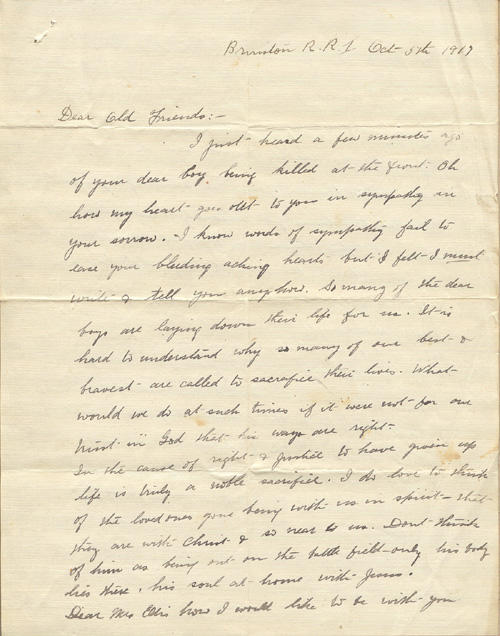 Brunston R.R.1 Oct 5th 1917
Dear Old Friends:-
I just heard a few minutes ago
of your dear boy, being killed at the front. Oh
how my heart goes out to you in sympathy in
your sorrow. I know words of sympathy fail to
ease your bleeding aching hearts but I felt I must
write & tell you anyhow. So many of the dear
boys are laying down their life for us. It is
hard to understand why so many of our best &
bravest are called to sacrafice their lives. What
would we do at such times if it were not for our
trust in God that his ways are right-
In the cause of right & justice to have given up
life is truly a noble sacrifice. I do love to think
of the loved ones gone being with us in spirit - that
they are with Christ & so near to us. Dont think
of him as being out on the battle field - only his body
lies there, his soul at home with Jesus.
Dear Mrs Ellis how I would like to be with you